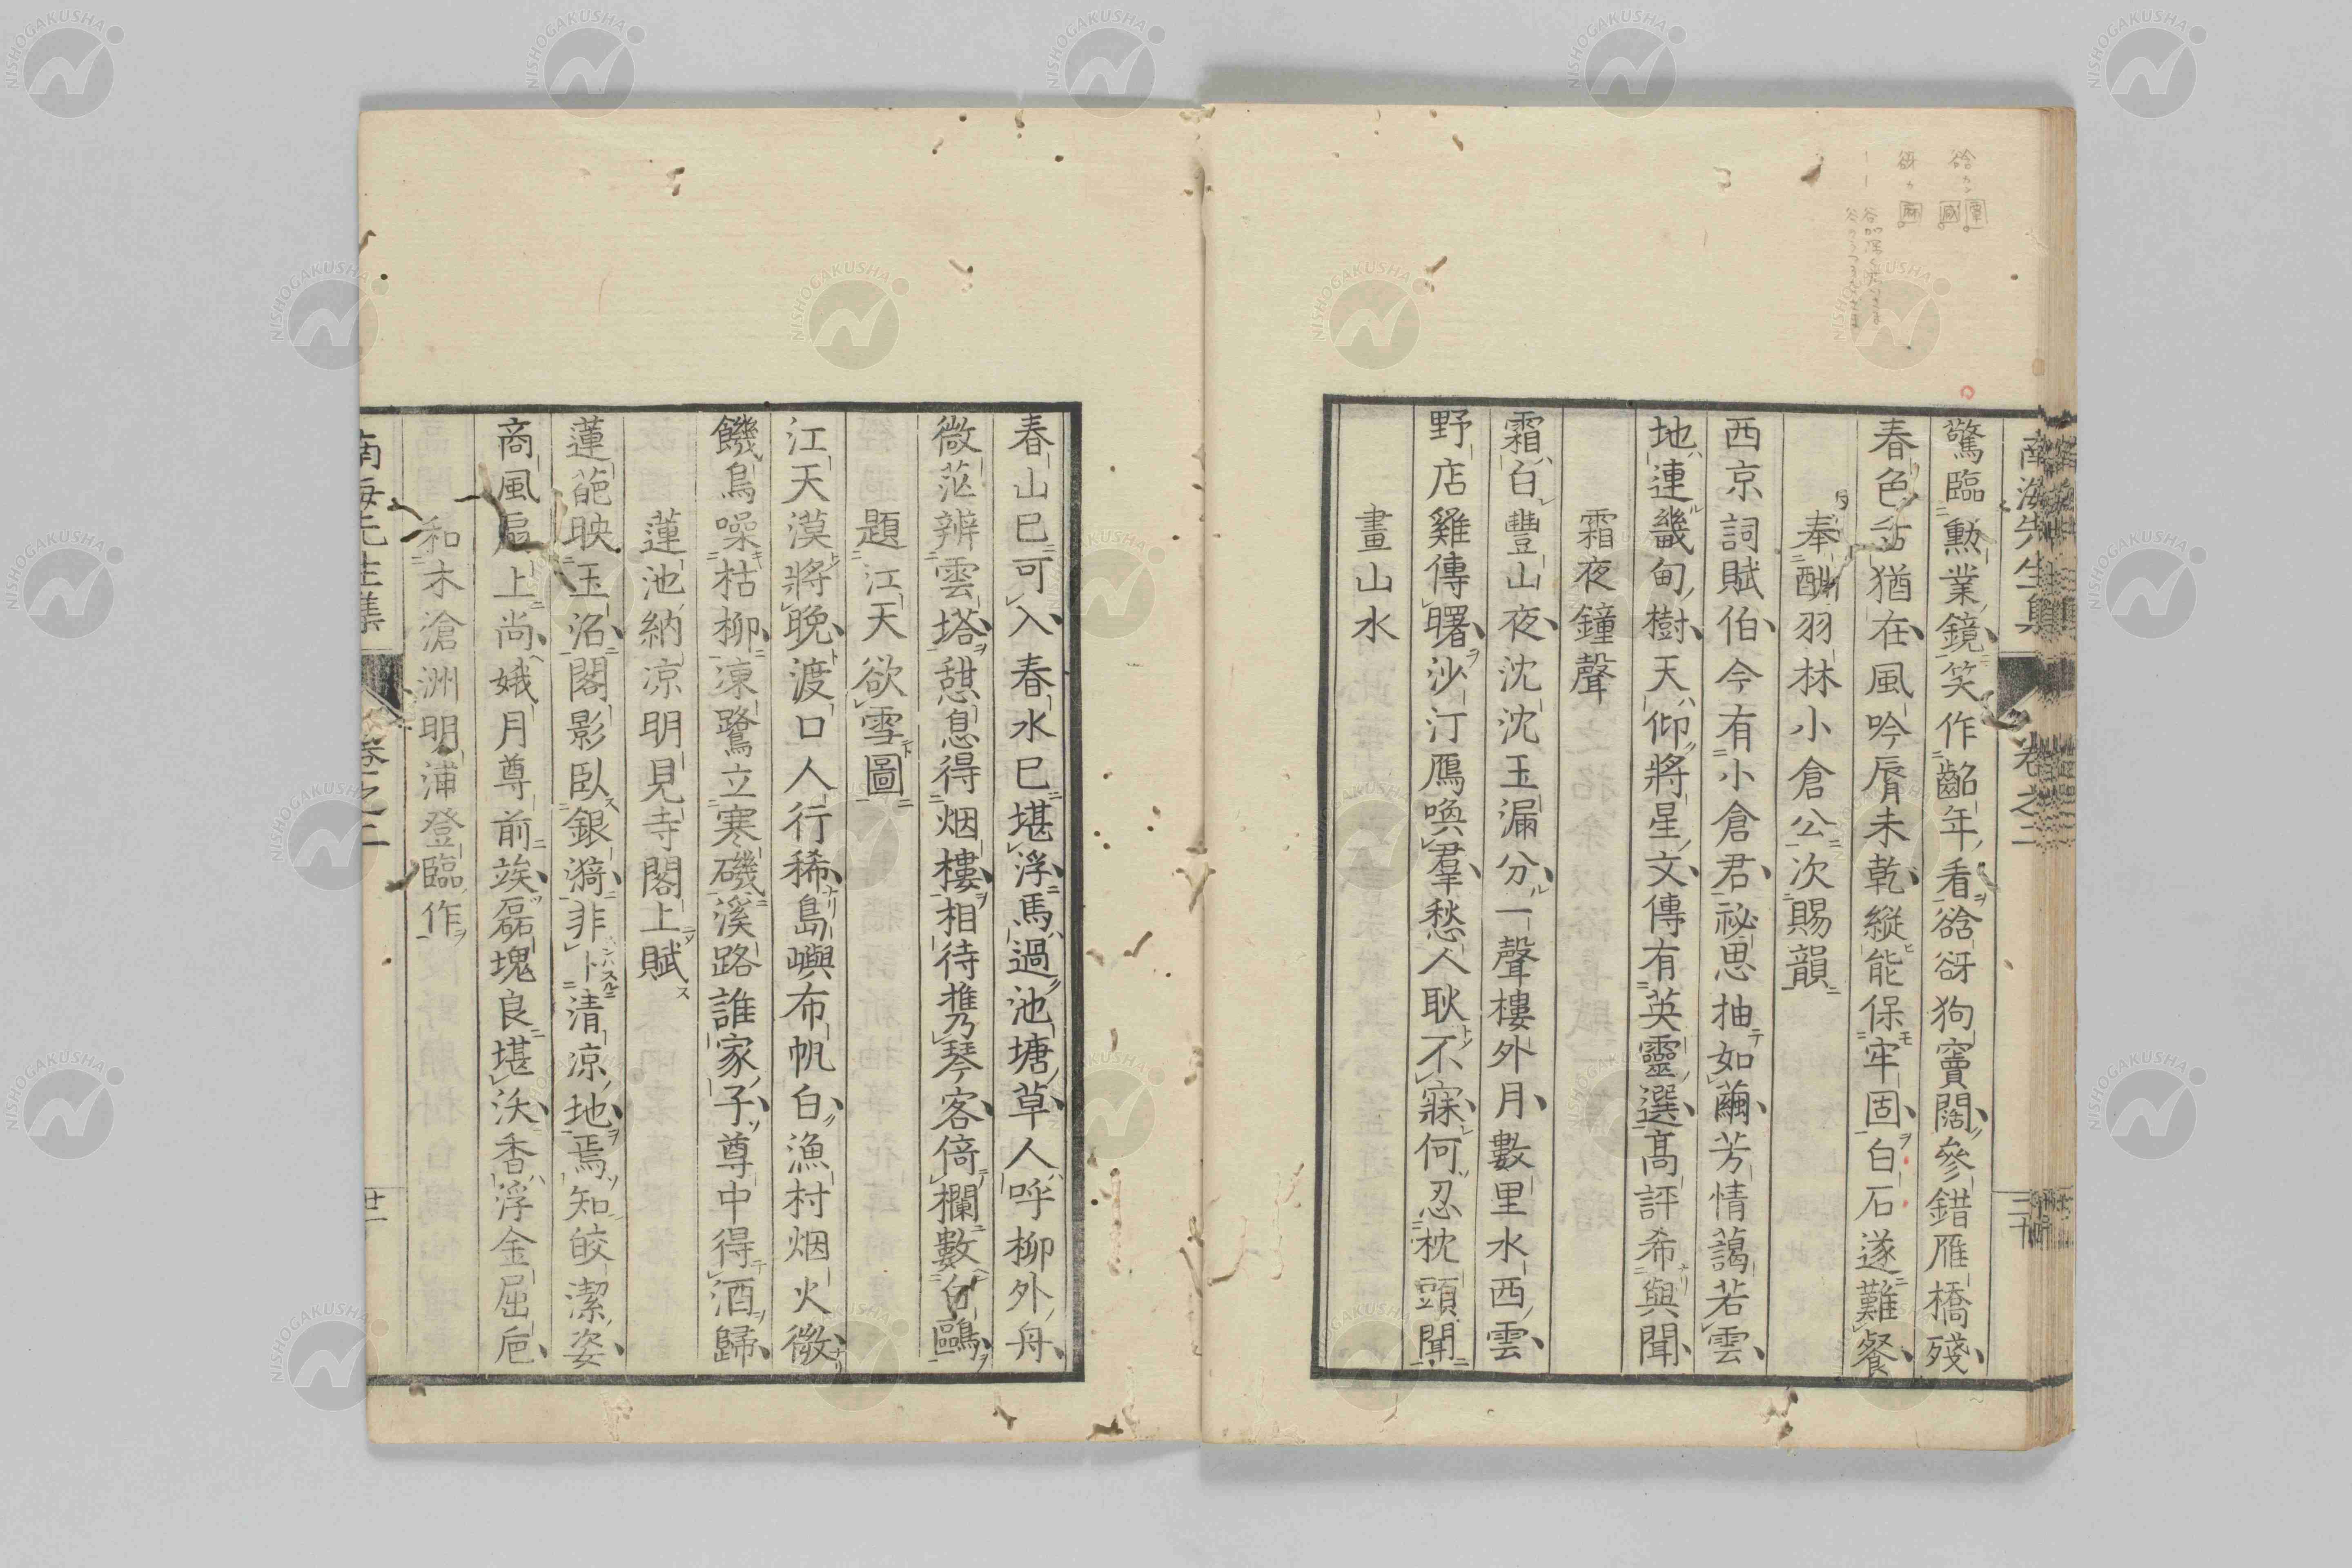 南海先生集 卷之二 三十
驚臨勲業鏡笑作齠年看谽谺狗竇闊參錯雁橋殘
春色舌猶在風吟脣未乾縱能保牢固白石遂難餐
奉酬羽林小倉公次賜韻
西京詞賦伯今有小倉君祕思抽如繭芳情藹若雲
地連畿甸樹天仰將星文傳有英靈選高評希與聞
霜夜鐘聲
霜白豐山夜沈沈玉漏分一聲樓外月數里水西雲
野店雞傳曙沙汀鴈喚羣愁人耿不寐何忍枕頭聞
畫山水
春山已可入春水已堪浮馬過池塘草人呼柳外舟
微茫辨雲塔憇息得烟樓相待携琴客倚欄數白鷗
題江天欲雪圖
江天漠將晩渡口人行稀島嶼布帆白漁村烟火微
饑烏噪枯柳凍鷺立寒磯溪路誰家子尊中得酒歸
蓮池納凉明見寺閣上賦
蓮葩映玉沼閣影臥銀漪非卜清凉地焉知皎潔姿
商風扆上尚娥月尊前竢磊塊良堪沃香浮金屈巵
和木滄洲明浦登臨作
南海先生集 卷之二 廿一
NISHOGAKUSHA